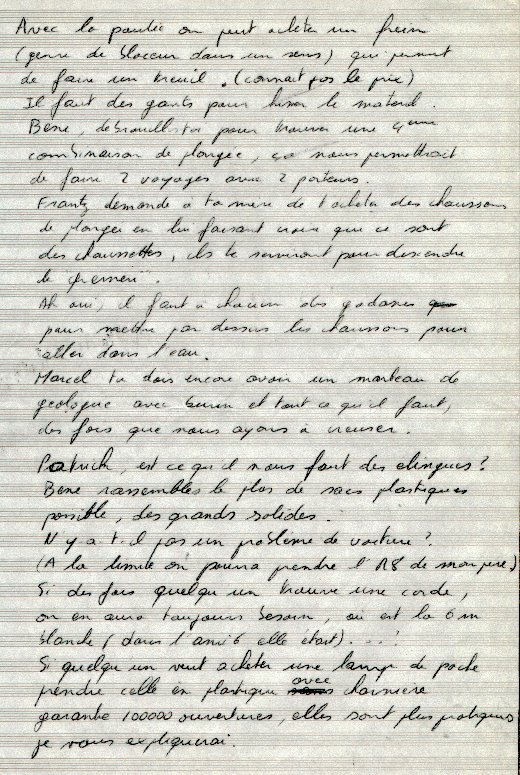 Avec la poulie on peut acheter un frein
(genre de bloceur dans un sens) qui permet
de faire un treuil. (connait pas le prix)
Il faut des gants pour hisser le materiel.
Bene, débrouilles toi pour trouver une 4ème
combinaison de plongée, ça nous permettrait
de faire 2 voyages avec 2 porteurs.
Frantz demande a ta mere de t'acheter des chaussons
de plongée en lui faisant croire que ce sont
des chaussettes, ils te serviront pour descendre
le
Ah oui, il faut a chacun des godasses
pour mettre par dessus les chaussons pour
aller dans l'eau.
Marcel tu dois encore avoir un marteau de
geologue avec burin et tout ce qu'il faut,
des fois que nous ayons à creuser.
Patrick, est ce qu'il nous faut des elingues?
Bene rassembles le plus de sacs plastiques
possible, des grands solides.
N'y a t-il pas un problème de voiture?
(A la limite on pourra prendre l'A8 de mon père)
Si des fois quelqu'un trouve une corde,
on en aura toujours besoin, où est la 6m
blanche (dans l'ami 6 elle était)....!
Si quelqu'un veut acheter une lampe de poche
prendre celle en plastique avec charnière
garantie 100000 ouvertures, elles sont plus pratiques
je vous expliquerai.